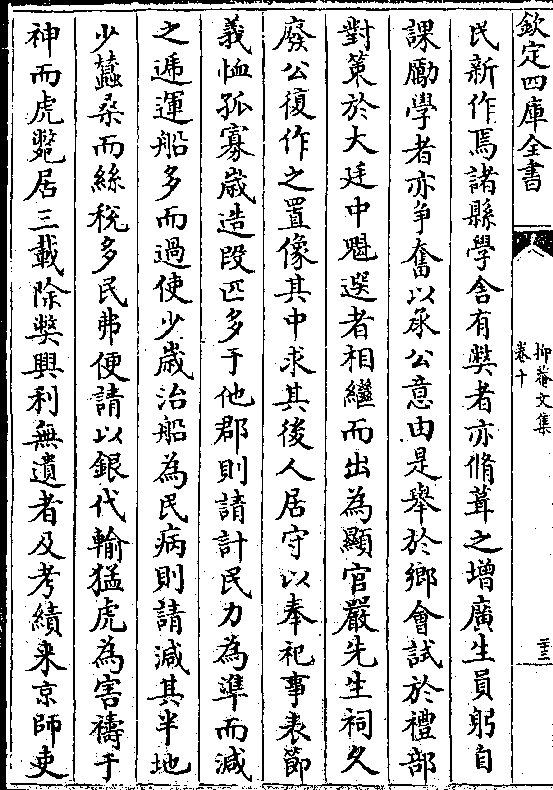 欽定四庫全書
民新作焉諸縣學舍有獘者亦脩葺之增廣生員躬自
課勵學者亦争奮以承公意由是舉於鄉會試於禮部
對策於大廷中魁選者相繼而出為顯官嚴先生祠久
廢公復作之置像其中求其後人居守以奉祀事表節
義恤孤寡歲造段匹多于他郡則請計民力為準而減
之逓運船多而過使少歲治船為民病則請減其半地
少蠶桑而絲稅多民弗便請以銀代輸猛虎為害禱于
神而虎斃居三載除獘興利無遺者及考績来京師吏
抑菴文集
卷十